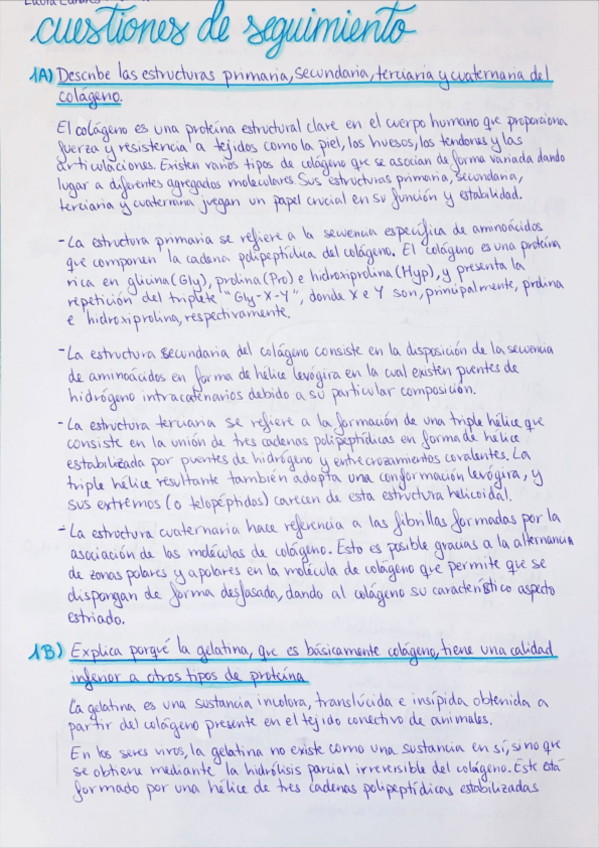 cuestiones de seguimiento
1A) Describe las estructuras primaria, secundaria, terciaria y cuaternaria del
colágeno.
El colágeno es una proteína estructural clave en el cuerpo humano que proporciona
fuerza y resistencia a tejidos como la piel, los huesos, los tendones y las
articulaciones. Existen varios tipos de colágeno que se asocian de forma variada dando
lugar a diferentes agregados moleculares. Sus estructuras primaria, secundaria,
terciaria y cuaternaria juegan un papel crucial en su función y estabilidad.
- La estructura primaria se refiere a la secuencia específica de aminoácidos
que componen la cadena polipeptídica del colágeno. El colágeno es una proteína
rica en glicina (Gly), prolina (Pro) e hidroxiprolina (Hyp), y presenta la
repetición del triplete "Gly-X-Y", donde X e Y son, principalmente, prolina
e hidroxiprolina, respectivamente.
- La estructura secundaria del colágeno consiste en la disposición de la secuencia
de aminoácidos en forma de hélice levógira en la cual existen puentes de
hidrógeno intracatenarios debido a su particular composición.
- La estructura terciaria se refiere a la formación de una triple hélice que
consiste en la unión de tres cadenas polipeptídicas en forma de hélice
estabilizada por puentes de hidrógeno y entrecruzamientos covalentes. La
triple hélice resultante también adopta una conformación levógira, y
sus extremos (o telopéptidos) carecen de esta estructura helicoidal.
- La estructura cuaternaria hace referencia a las fibrillas formadas por la
asociación de las moléculas de colágeno. Esto es posible gracias a la alternancia
de zonas polares y apolares en la molécula de colágeno que permite que se
dispongan de forma desfasada, dando al colágeno su característico aspecto
estriado.
1B) Explica porqué la gelatina, que es básicamente colágeno, tiene una calidad
inferior a otros tipos de proteína
La gelatina es una sustancia incolora, translúcida e insípida obtenida a
partir del colágeno presente en el tejido conectivo de animales.
En los seres vivos, la gelatina no existe como una sustancia en sí, sino que
se obtiene mediante la hidrólisis parcial irreversible del colágeno. Este está
formado por una hélice de tres cadenas polipeptídicas estabilizadas